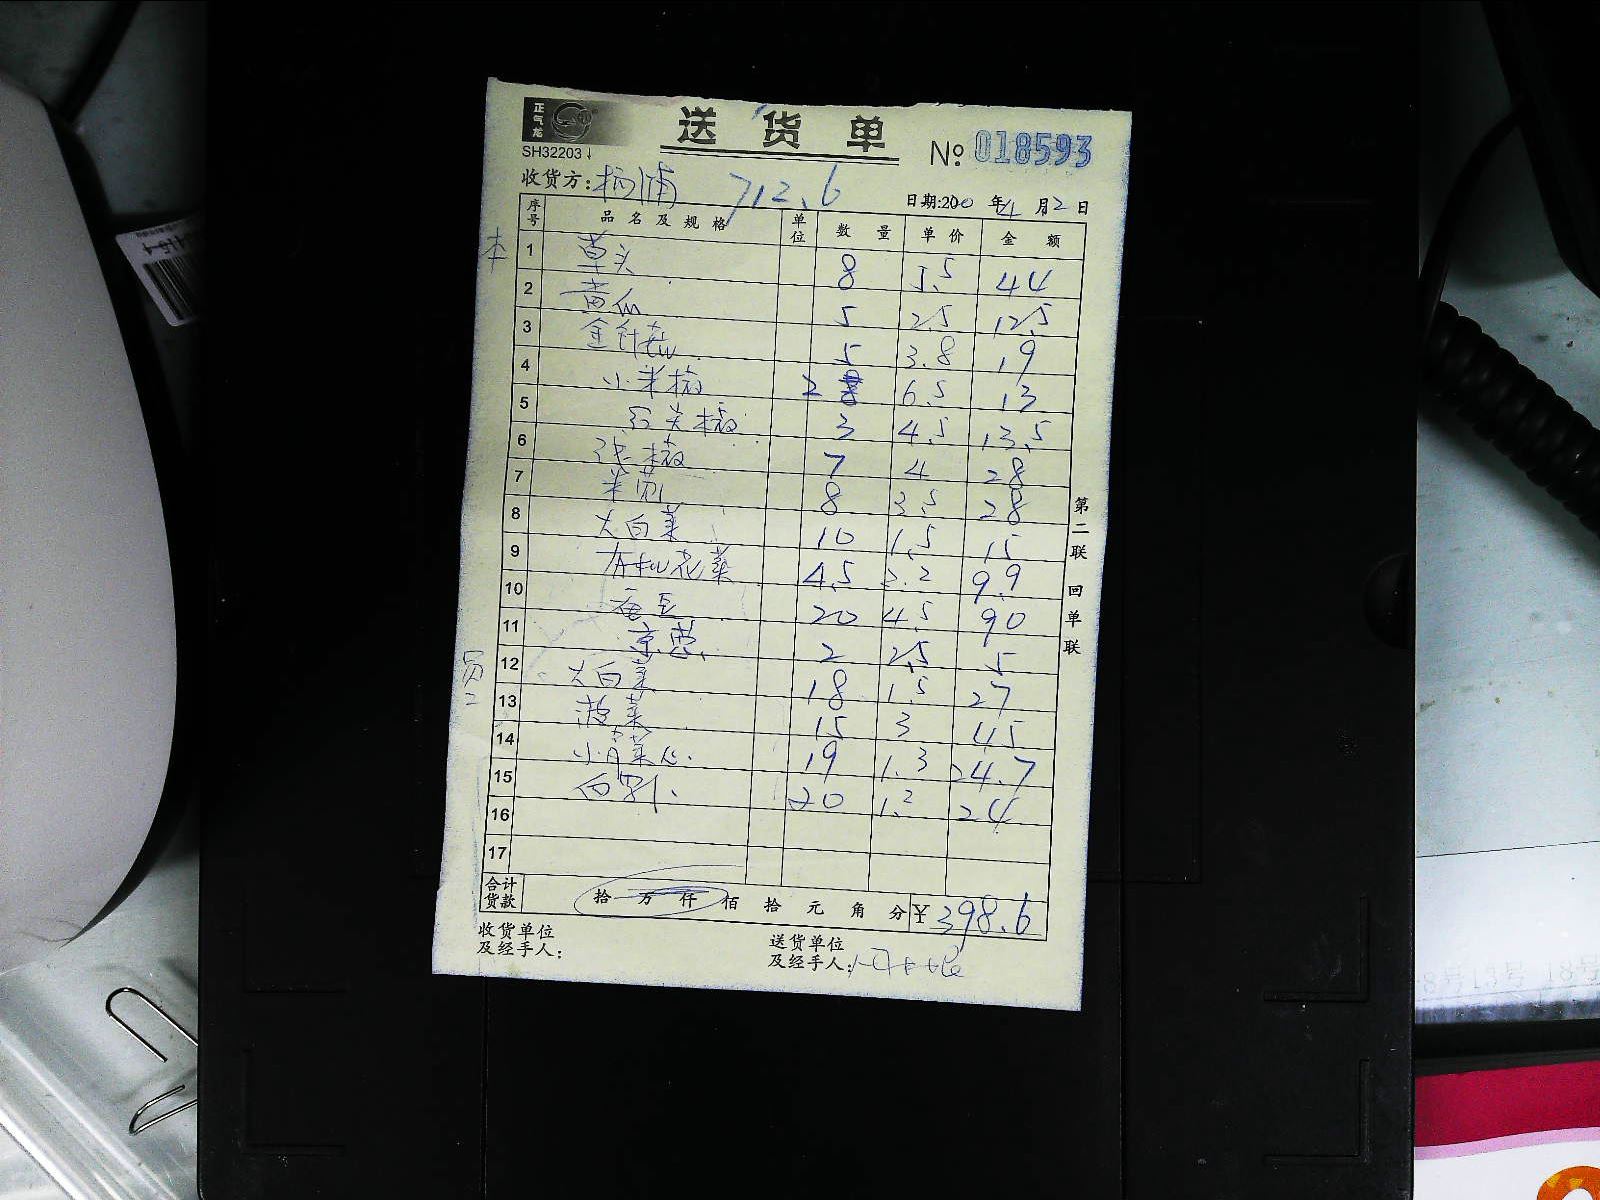 正气龙
SH32203
送货单
№ 018593
收货方: 杨浦 712.6
日期:200 年 4 月 2 日
序号 品名及规格 单位 数量 单价 金额
本
1 草头 8 5.5 44
2 黄瓜 5 2.5 12.5
3 金针菇 5 3.8 19
4 小米椒 2 6.5 13
5 红尖椒 3 4.5 13.5
6 7 4 28
7 米苋 8 3.5 28
8 大白菜 10 1.5 15
9 有机花菜 4.5 2.2 9.9
10 蚕豆 20 4.5 90
11 京葱 2 2.5 5
员工
12 大白菜 18 1.5 27
13 菠菜 15 3 45
14 小青菜心 19 1.3 24.7
15 白萝卜 20 1.2 24
16
17
合计货款 拾 万 仟 佰 拾 元 角 分 ¥ 398.6
收货单位及经手人:
送货单位及经手人:
第二联 回单联